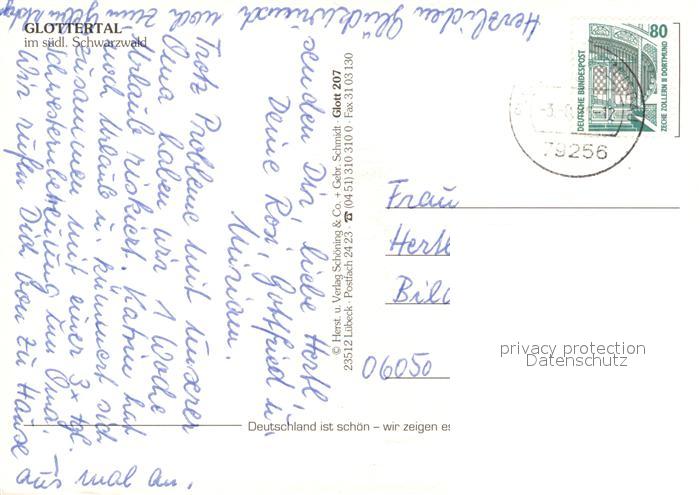 GLOTTERTAL
im südl. Schwarzwald
Herzlichen Glückwunsch noch zum
senden Dir, liebe Hertl,
Deine Rosi, Gottfried u.
Miriam.
Trotz Probleme mit unserer
Oma haben wir 1 Woche
Urlaub riskiert. Katrin hat
noch Urlaub u. kümmert sich
zusammen mit einer 3x tgl.
Schwesternbetreuung um Oma.
Wir rufen Dich von zu Hause
aus mal an.
© Herst. u. Verlag Schöning & Co. + Gebr. Schmidt · Glott 207
23512 Lübeck · Postfach 24 23 ☎ (04 51) 310 310 0 · Fax 31 03 130
Deutschland ist schön – wir zeigen es
80
DEUTSCHE BUNDESPOST
ZECHE ZOLLERN II DORTMUND
79256
Frau
Hertl
06050
privacy protection
Datenschutz